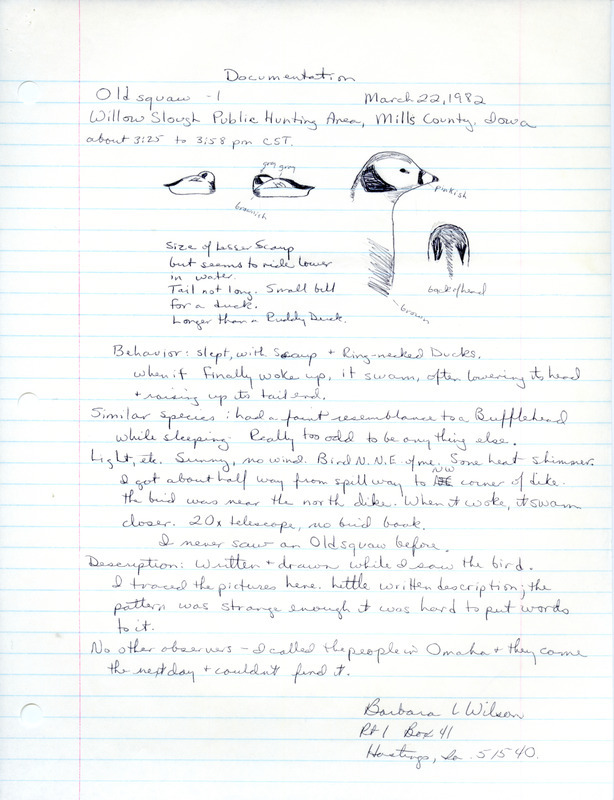 Documentation
Oldsquaw - 1 March 22, 1982
Willow Slough Public Hunting Area, Mills County, Iowa
about 3:25 to 3:58 pm CST.
gray gray
brownish
pinkish
Size of Lesser Scaup
but seems to ride lower
in water.
Tail not long. Small bill
for a duck.
Longer than a Ruddy Duck.
back of head
brown
Behavior: slept, with Scaup + Ring-necked Ducks.
when it finally woke up, it swam, often lowering its head
+ raising up its tail end.
Similar species: had a faint resemblance to a Bufflehead
while sleeping. Really too odd to be anything else.
Light, etc. Sunny, no wind. Bird N.N.E of me. Some heat shimmer.
I got about half way from spillway to NW corner of dike.
the bird was near the north dike. When it woke, it swam
closer. 20x telescope, no bird book.
I never saw an Oldsquaw before.
Description: Written + drawn while I saw the bird.
I traced the pictures here. Little written description; the
pattern was strange enough it was hard to put words
to it.
No other observers - I called the people in Omaha + they came
the next day + couldn't find it.
Barbara L Wilson
Rt 1 Box 41
Hastings, Ia. 51540.